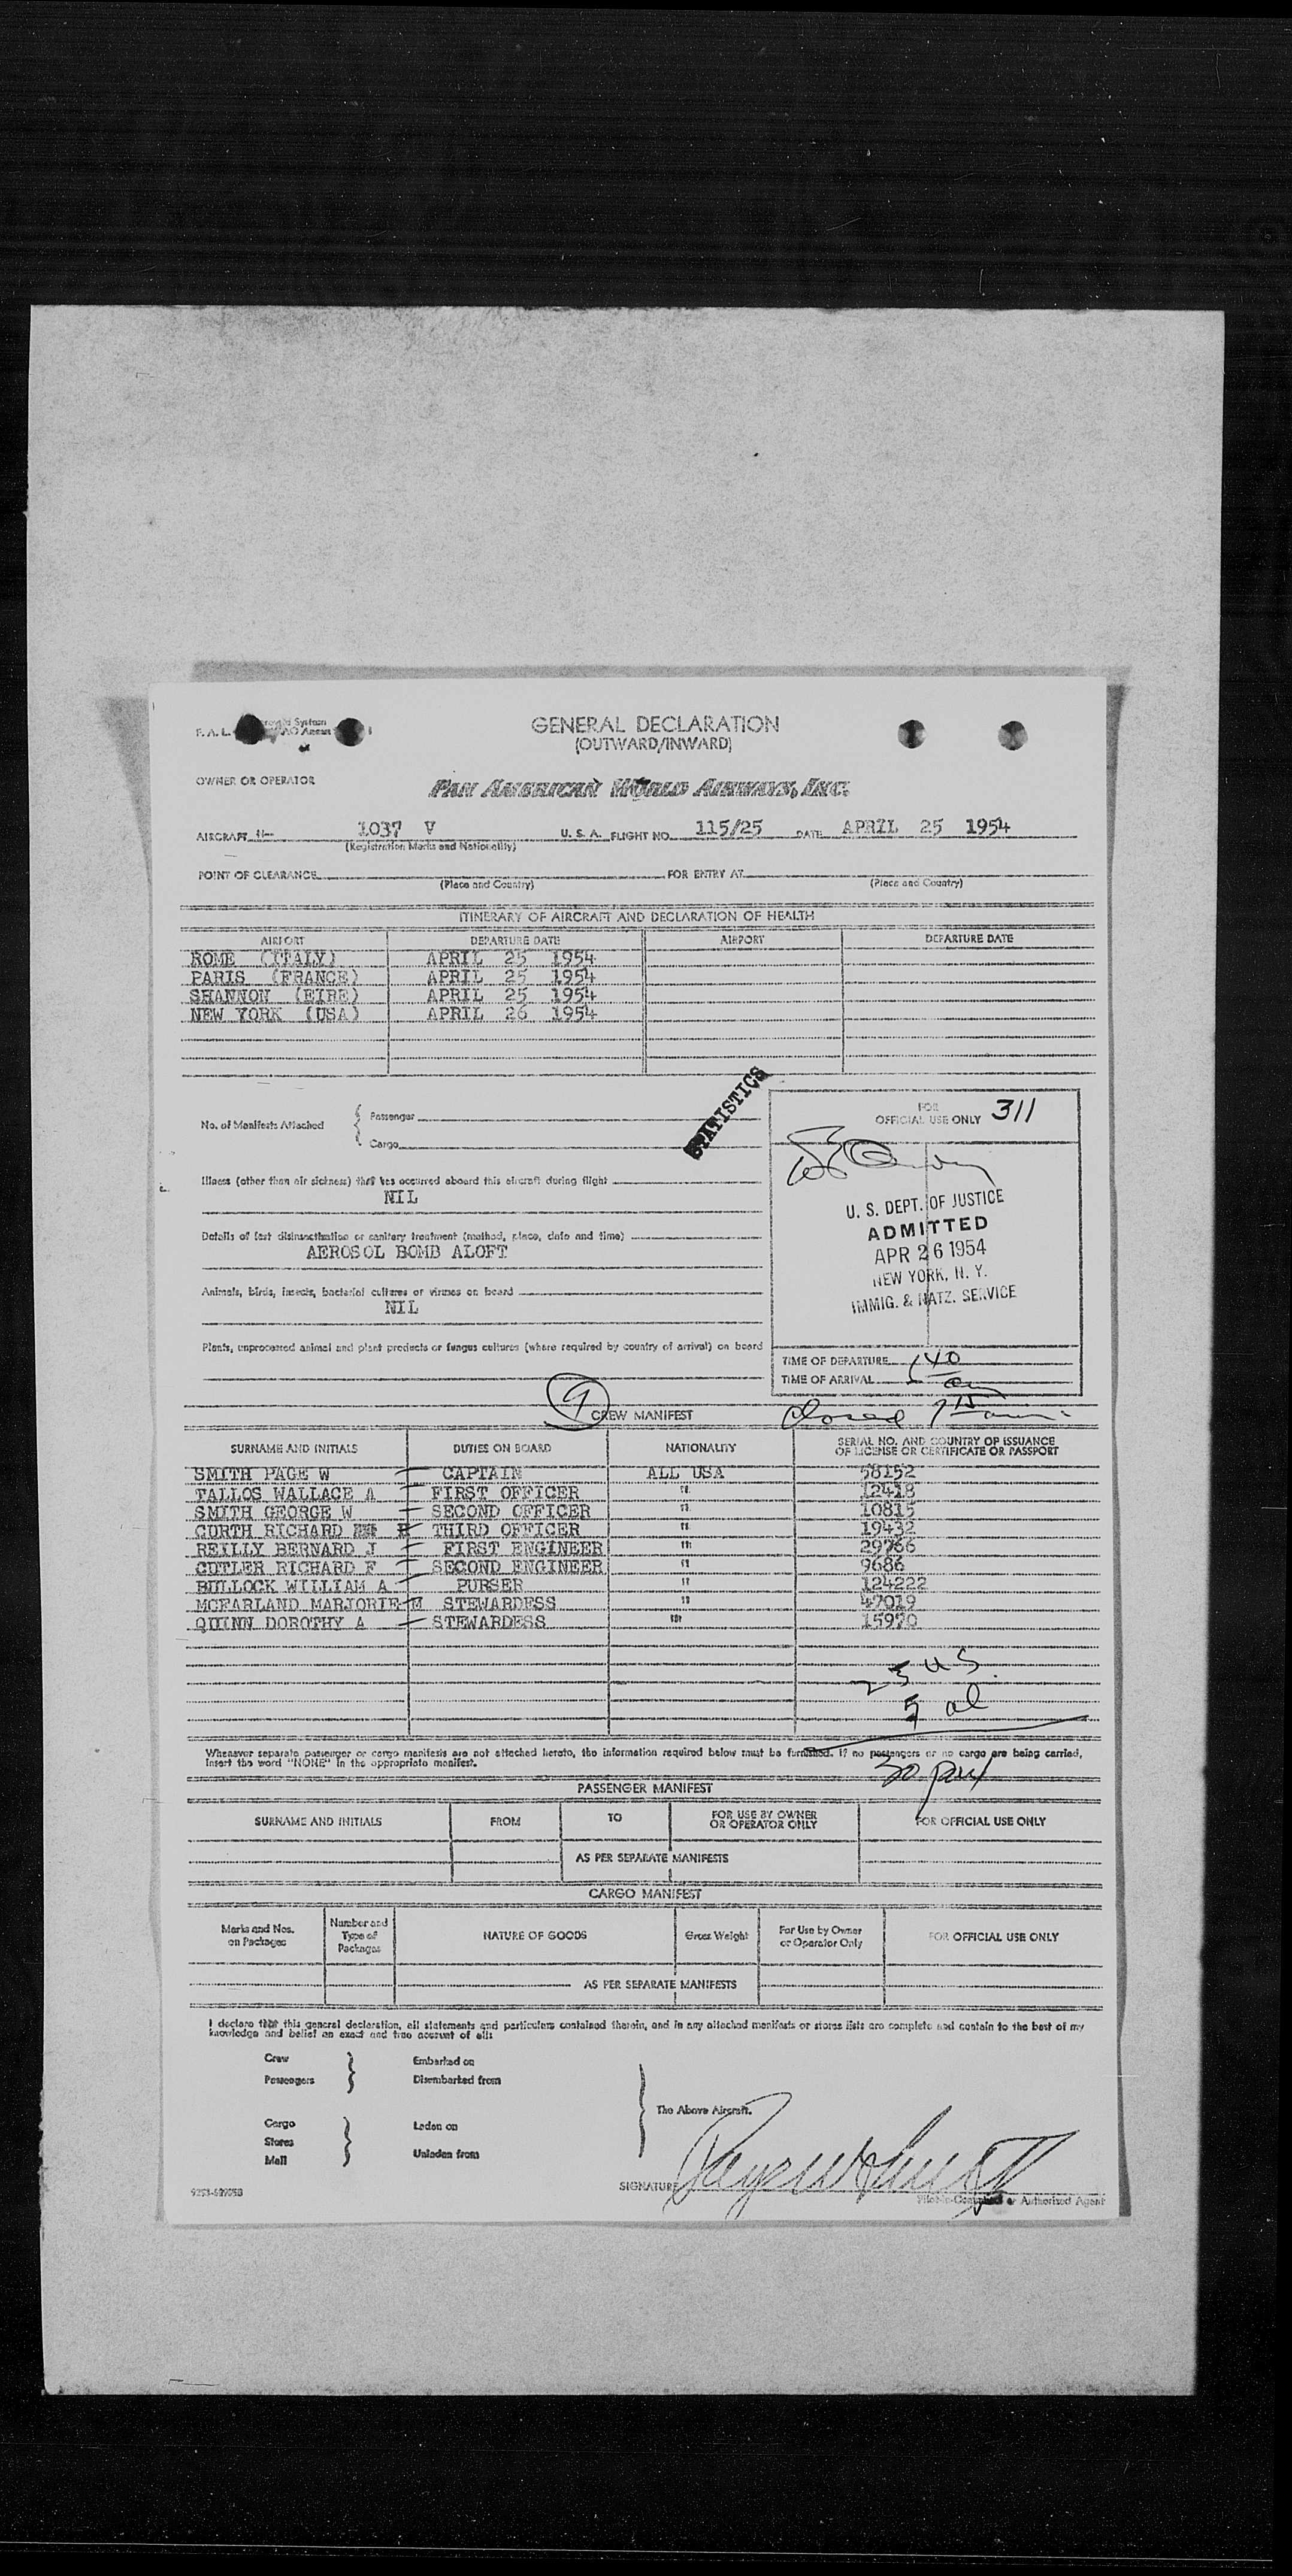 GENERAL DECLARATION
(OUTWARD/INWARD)
F. A. L.
OWNER OR OPERATOR
PAN AMERICAN WORLD AIRWAYS, INC.
AIRCRAFT N- 1037 V U. S. A. FLIGHT NO. 115/25 DATE APRIL 25 1954
(Registration Marks and Nationality)
POINT OF CLEARANCE FOR ENTRY AT
(Place and Country) (Place and Country)
ITINERARY OF AIRCRAFT AND DECLARATION OF HEALTH
AIRPORT DEPARTURE DATE AIRPORT DEPARTURE DATE
ROME (ITALY) APRIL 25 1954
PARIS (FRANCE) APRIL 25 1954
SHANNON (EIRE) APRIL 25 1954
NEW YORK (USA) APRIL 26 1954
STATISTICS
No. of Manifests Attached
Passenger
Cargo
FOR
OFFICIAL USE ONLY 311
Illness (other than air sickness) that has occurred aboard this aircraft during flight
NIL
Details of last disinsectization or sanitary treatment (method, place, date and time)
AEROSOL BOMB ALOFT
Animals, birds, insects, bacterial cultures or viruses on board
NIL
Plants, unprocessed animal and plant products or fungus cultures (where required by country of arrival) on board
U. S. DEPT. OF JUSTICE
ADMITTED
APR 26 1954
NEW YORK, N. Y.
IMMIG. & NATZ. SERVICE
TIME OF DEPARTURE
TIME OF ARRIVAL
9 CREW MANIFEST
closed 7 15 am
SURNAME AND INITIALS DUTIES ON BOARD NATIONALITY SERIAL NO. AND COUNTRY OF ISSUANCE
OF LICENSE OR CERTIFICATE OR PASSPORT
SMITH PAGE W CAPTAIN ALL USA 58152
TALLOS WALLACE A FIRST OFFICER " 12418
SMITH GEORGE W SECOND OFFICER " 10815
CURTH RICHARD H THIRD OFFICER " 19432
REILLY BERNARD J FIRST ENGINEER " 29766
CUTLER RICHARD F SECOND ENGINEER " 9686
BULLOCK WILLIAM A PURSER " 124222
MCFARLAND MARJORIE M STEWARDESS " 47019
QUINN DOROTHY A STEWARDESS " 15970
25 US
5 al
30 pax
Whenever separate passenger or cargo manifests are not attached hereto, the information required below must be furnished. If no passengers or no cargo are being carried,
insert the word "NONE" in the appropriate manifest.
PASSENGER MANIFEST
SURNAME AND INITIALS FROM TO FOR USE BY OWNER
OR OPERATOR ONLY FOR OFFICIAL USE ONLY
AS PER SEPARATE MANIFESTS
CARGO MANIFEST
Marks and Nos.
on Packages Number and
Type of
Packages NATURE OF GOODS Gross Weight For Use by Owner
or Operator Only FOR OFFICIAL USE ONLY
AS PER SEPARATE MANIFESTS
I declare that this general declaration, all statements and particulars contained therein, and in any attached manifests or stores lists are complete and contain to the best of my
knowledge and belief an exact and true account of all:
Crew Embarked on
Passengers Disembarked from
The Above Aircraft.
Cargo Laden on
Stores
Mail Unladen from
SIGNATURE
Pilot-in-Command or Authorized Agent